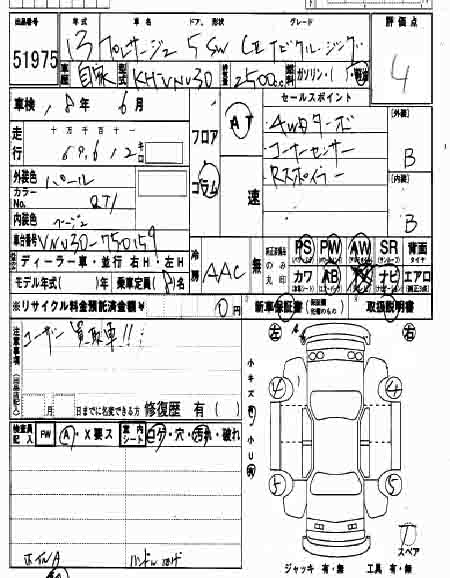 出品番号 年式 車名 ドア、形状 グレード 評価点
51975 13 プレサージュ 5 SW
車歴 自家 型式 KH-VNU30 排気量 2500cc 燃料 ガソリン・(軽油) 4
車検 18年 6月 フロア AT セールスポイント
走行 十万千百十一 キロ 4WDターボ 外装
69,612 コーナーセンサー B
外装色 パール コラム 速 Rスポイラー 内装
カラーNo. QT1 B
内装色
車台番号 VNU30-750159 冷房 AAC 無 純正装備品のみ丸印 PS PW AW SR 背面タイヤ
ディーラー車・並行 右H・左H カワ AB TV ナビ エアロ
モデル年式( )年 乗車定員(8)名
※リサイクル料金預託済金額¥ 0円 新車保証書 取扱説明書
注意事項 ユーザー買取車!! 左 A 右
小キズ有 4 4
月 日までに名変できる方 修復歴 有( ) 小U有
検査員記入 PW A・X要ス 室内シート コゲ・穴・汚れ・破れ
5 5
ホイルA
スペア
ジャッキ 有・無 工具 有・無